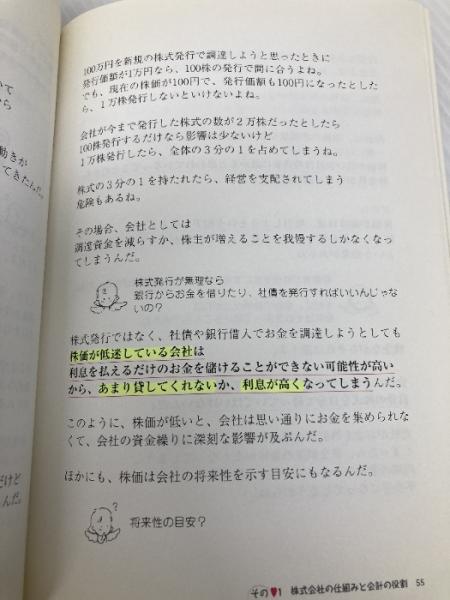 いて
なら
動きが
てきたんだ。
だけど
んだ。
100万円を新規の株式発行で調達しようと思ったときに
発行価額が1万円なら、100株の発行で間に合うよね。
でも、現在の株価が100円で、発行価額も100円になったとした
ら、1万株発行しないといけないよね。
会社が今まで発行した株式の数が2万株だったとしたら
100株発行するだけなら影響は少ないけど
1万株発行したら、全体の3分の1を占めてしまうね。
株式の3分の1を持たれたら、経営を支配されてしまう
危険もあるね。
その場合、会社としては
調達資金を減らすか、株主が増えることを我慢するしかなくなっ
てしまうんだ。
株式発行が無理なら
銀行からお金を借りたり、社債を発行すればいいんじゃな
いの?
株式発行ではなく、社債や銀行借入でお金を調達しようとしても
株価が低迷している会社は
利息を払えるだけのお金を儲けることができない可能性が高い
から、あまり貸してくれないか、利息が高くなってしまうんだ。
このように、株価が低いと、会社は思い通りにお金を集められな
くて、会社の資金繰りに深刻な影響が及ぶんだ。
ほかにも、株価は会社の将来性を示す目安にもなるんだ。
?
将来性の目安?
その♥1 株式会社の仕組みと会計の役割 55